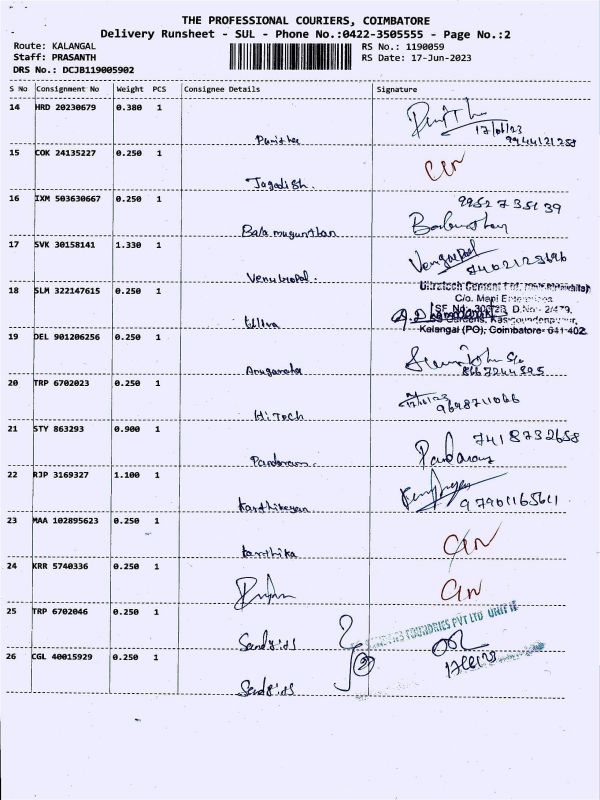 THE PROFESSIONAL COURIERS, COIMBATORE
Delivery Runsheet - SUL - Phone No.:0422-3505555 - Page No.:2
Route: KALANGAL RS No.: 1190059
Staff: PRASANTH RS Date: 17-Jun-2023
DRS No.: DCJB119005902
S No Consignment No Weight PCS Consignee Details Signature
14 HRD 20230679 0.380 1
17/06/23
9944121258
Punitha
15 COK 24135227 0.250 1
Jagadish.
16 IXM 503630667 0.250 1
9952735139
Bala mugunthan
17 SVK 30158141 1.330 1
Venugopal
9402123696
Venukopal.
18 SLM 322147615 0.250 1
Ultratech Cement Ltd.
C/o. Mapi Enterprises
SF No. 307/2B, D.No.- 2/479,
Kalangal (PO), Coimbatore- 641 402
Ultra
19 DEL 901206256 0.250 1
8667244895
20 TRP 6702023 0.250 1
9698711066
Hi Tech
21 STY 863293 0.900 1
7418732658
Pandaram.
22 RJP 3169327 1.100 1
97901165611
Karthikeyan
23 MAA 102895623 0.250 1
karthika
24 KRR 5740336 0.250 1
25 TRP 6702046 0.250 1
FOUNDRIES PVT LTD UNIT II
26 CGL 40015929 0.250 1
2